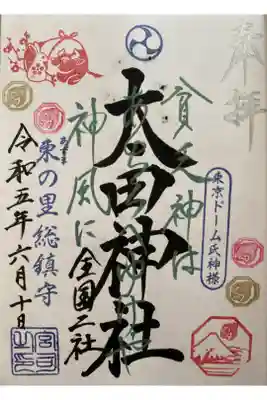 奉拝
東京ドーム氏神様
貧乏神は
神風に
太田神社
全国二社
東の里総鎮守
令和五年六月十日